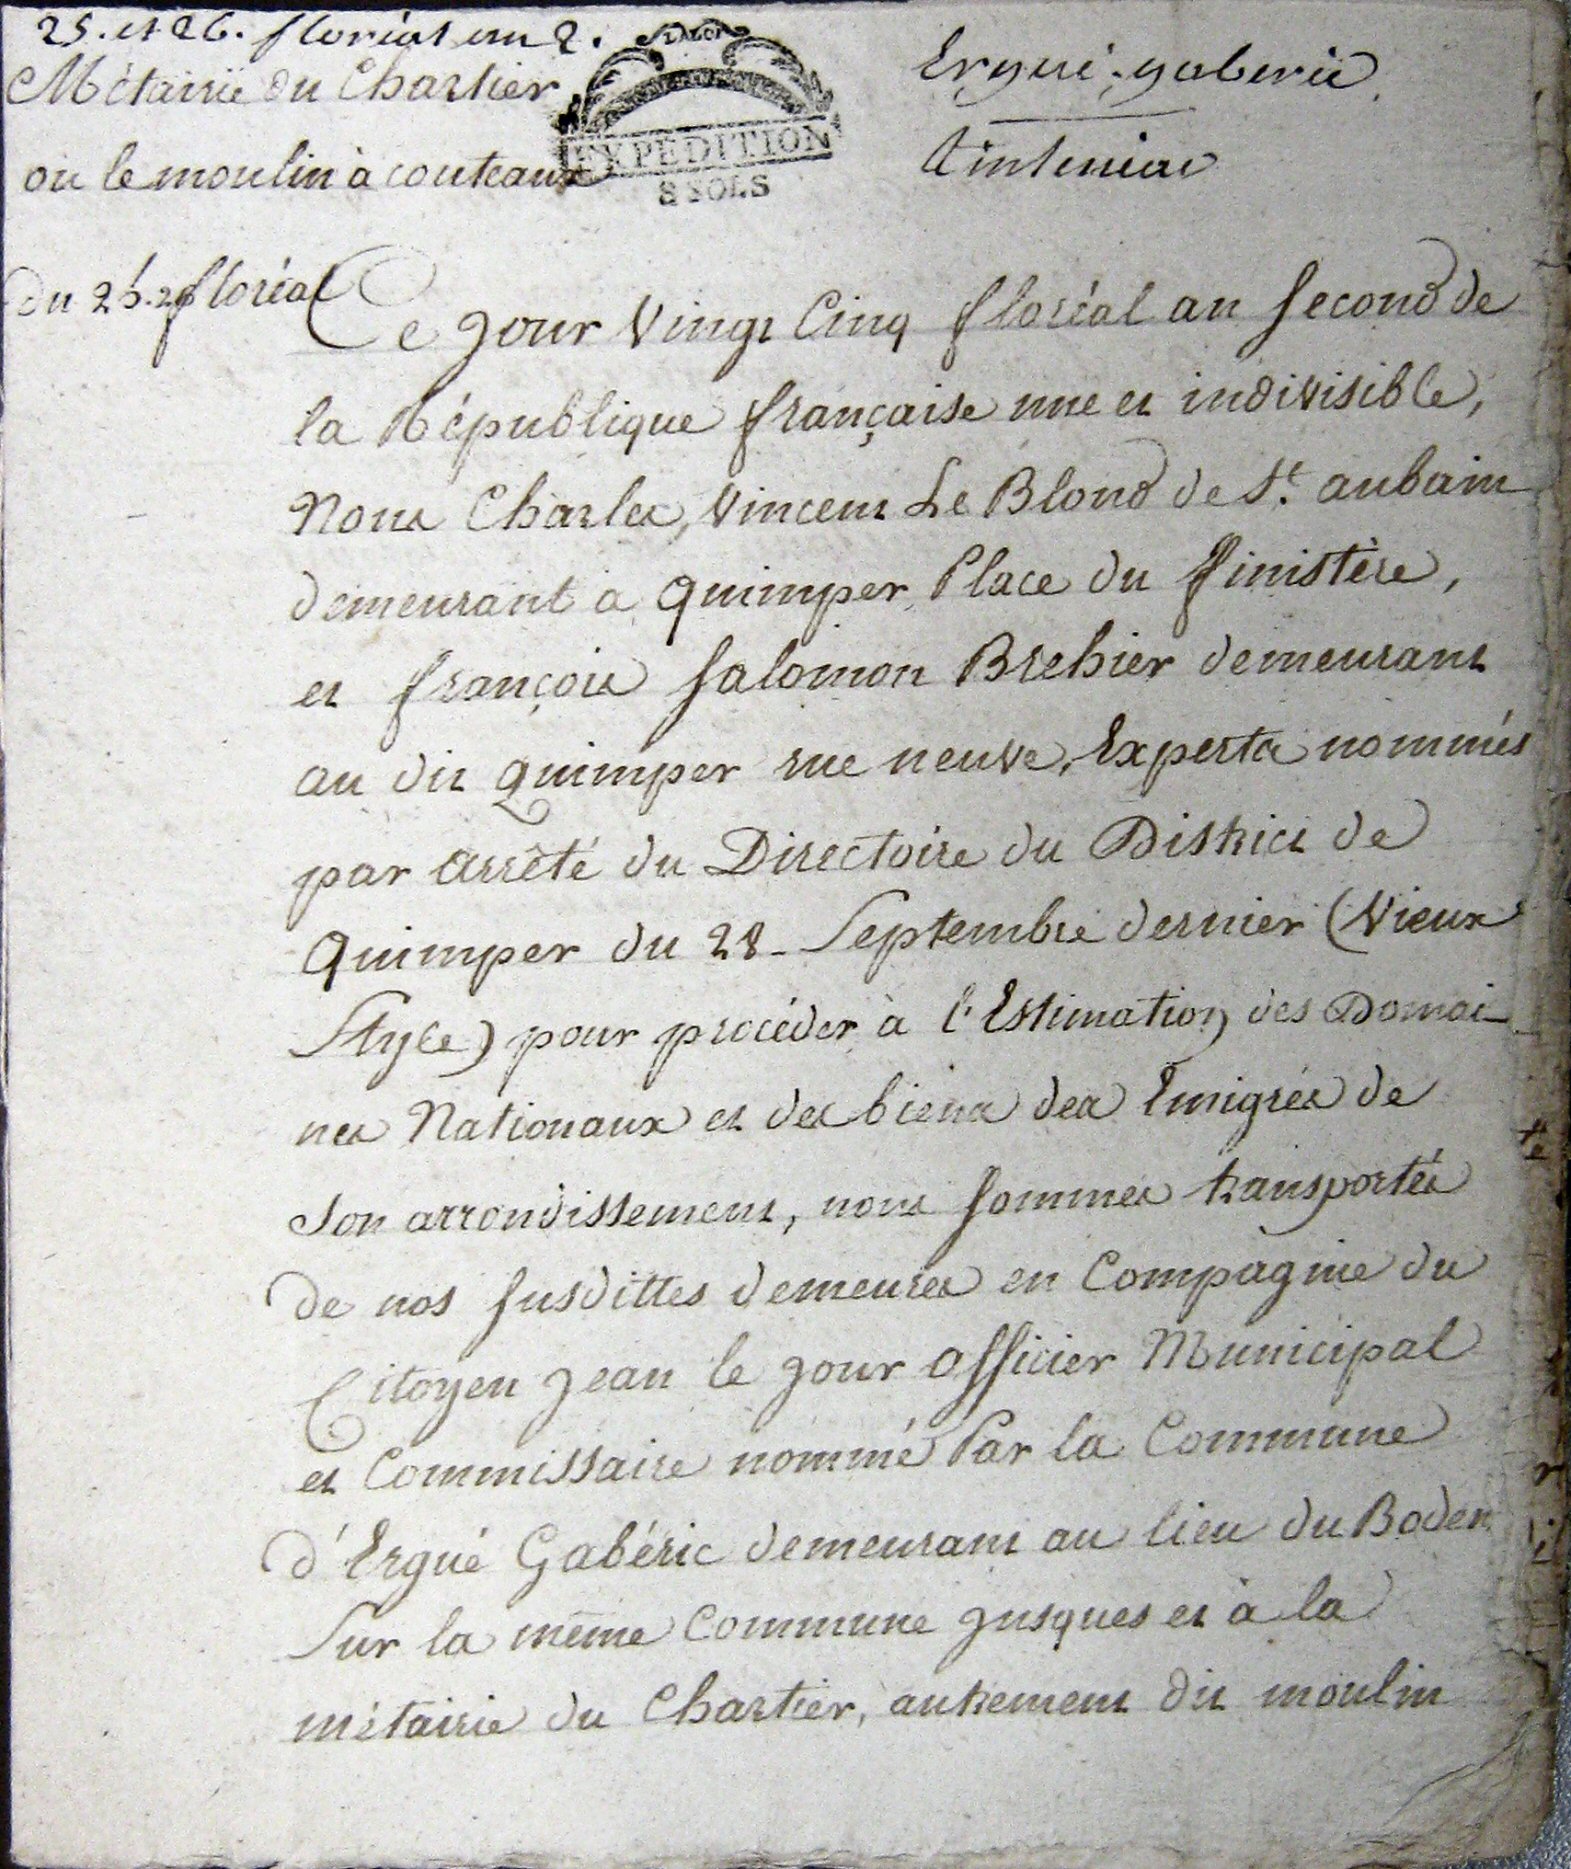 25. et 26. floréal an 2.
Métairie du Chartier
ou le moulin à couteaux
EXPEDITION
8 SOLS
Ergué-gaberic
tinteniac
du 25. floréal
Ce jour vingt Cinq floréal an second de
la République française une et indivisible,
Nous Charles, Vincent Le Blond de St. aubain
demeurant a quimper Place du finistère,
et françois Salomon Brehier demeurant
au dit quimper rue neuve, Experts nommés
par arrêté du Directoire du District de
Quimper du 28 Septembre dernier (Vieux
Style) pour procéder à l'Estimation des Domai-
nes Nationaux et des biens des Emigrés de
Son arrondissement, nous sommes transportés
de nos susdittes demeures en Compagnie du
Citoyen Jean le Jour officier Municipal
et Commissaire nommé Par la Commune
d'Ergué Gabéric demeurant au lieu du Boden
Sur la même Commune Jusques et à la
métairie du Chartier, autrement dit moulin